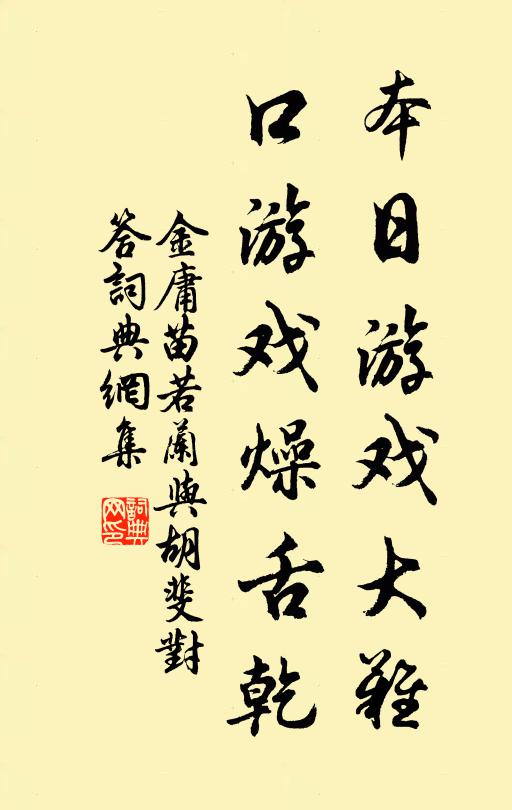 本日游戏大難
口游戏燥舌乾
金庸苗若蘭與胡斐對
答詞典網集
詞典网印